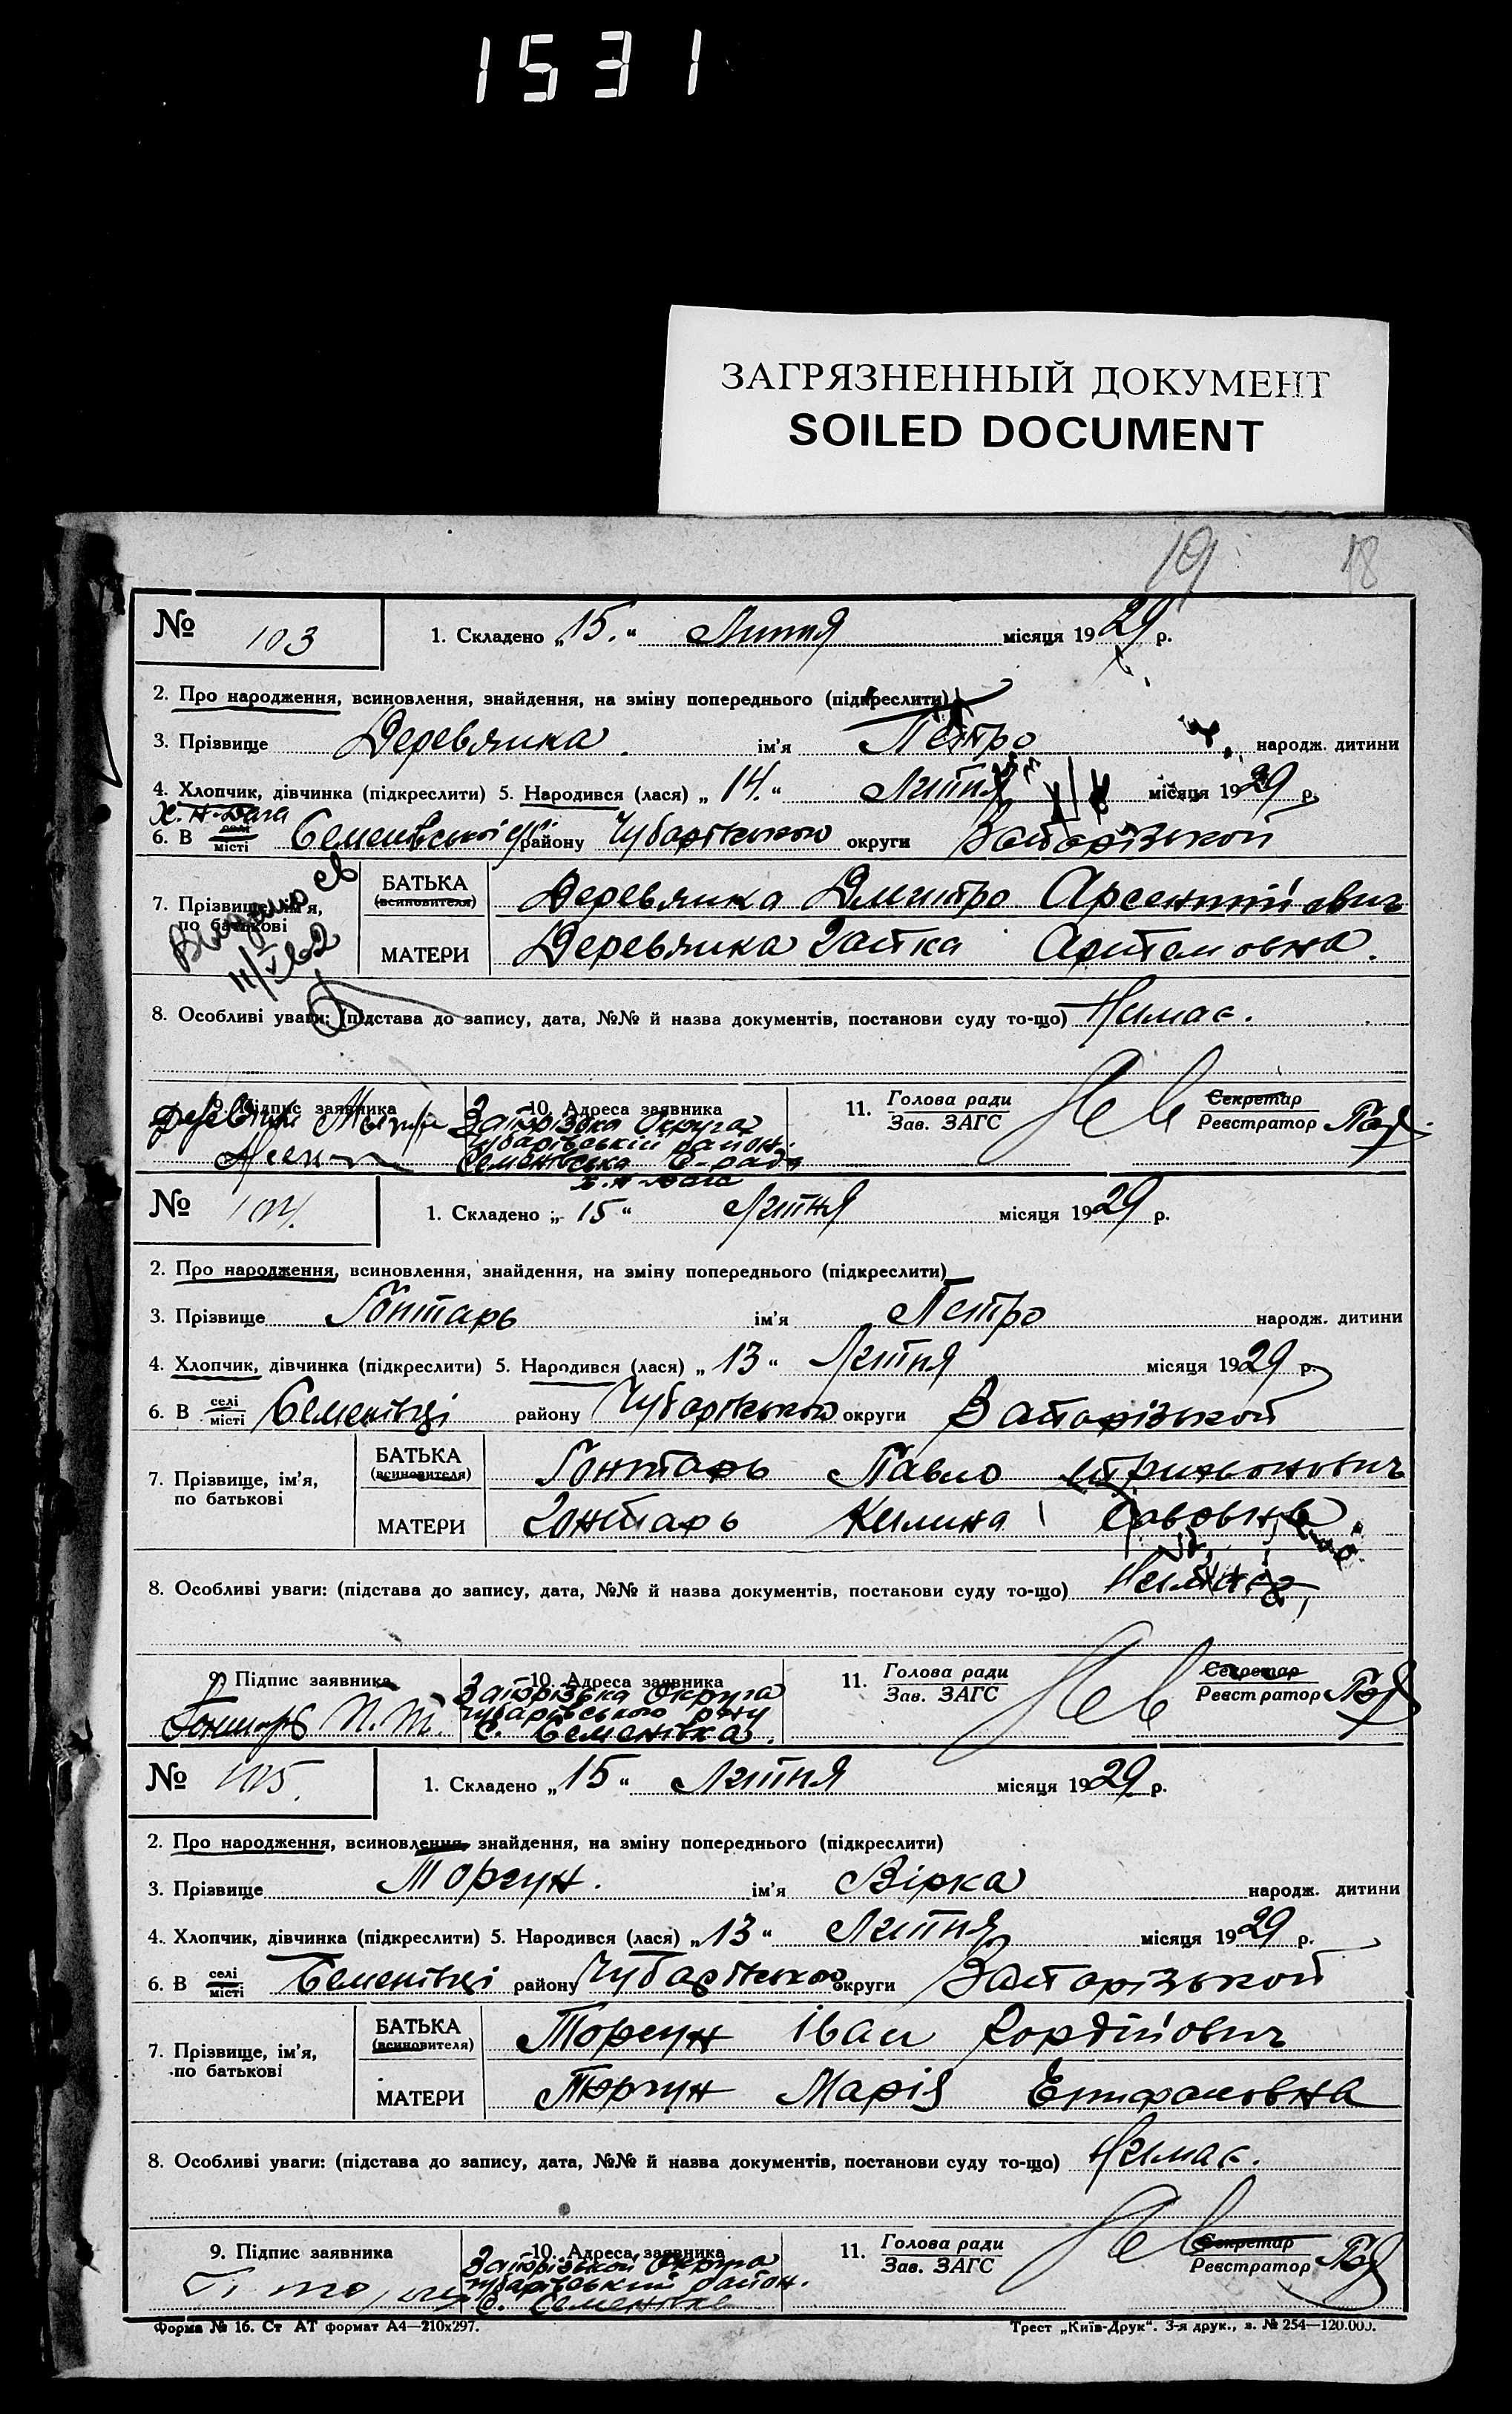 1531
ЗАГРЯЗНЕННЫЙ ДОКУМЕНТ
SOILED DOCUMENT
19 18
№ 103 1. Складено „15.“ Липня місяця 1929 р.
2. Про народження, всиновлення, знайдення, на зміну попереднього (підкреслити)
3. Прізвище Деревянка ім'я Петро народж. дитини
4. Хлопчик, дівчинка (підкреслити) 5. Народився (лася) „14.“ Липня місяця 1929 р.
6. В місті Семенівської району Чубарівського округи Запорізькой
7. Прізвище, ім'я, по батькові
БАТЬКА (всиновителя) Деревянка Дмитро Арсентійович
МАТЕРИ Деревянка Артемовна.
8. Особливі уваги: (підстава до запису, дата, №№ й назва документів, постанови суду то-що) Немає.
9. Підпис заявника 10. Адреса заявника 11. Голова ради Секретар
Зав. ЗАГС Реєстратор
Запорізька Округа
Чубарівський район.
Семенівська С-рада
№ 104. 1. Складено „15“ Липня місяця 1929 р.
2. Про народження, всиновлення, знайдення, на зміну попереднього (підкреслити)
3. Прізвище Гонтарь ім'я Петро народж. дитини
4. Хлопчик, дівчинка (підкреслити) 5. Народився (лася) „13“ Липня місяця 1929 р.
6. В селі місті Семенівці району Чубарівського округи Запорізькой
7. Прізвище, ім'я, по батькові
БАТЬКА (всиновителя) Гонтарь Павло
МАТЕРИ Гонтарь Килина Савовна
8. Особливі уваги: (підстава до запису, дата, №№ й назва документів, постанови суду то-що) Немає
9. Підпис заявника 10. Адреса заявника 11. Голова ради Секретар
Зав. ЗАГС Реєстратор
Запорізька Округа
Чубарівського р-ну
Гонтарь П. Т. с. Семенівка.
№ 105. 1. Складено „15“ Липня місяця 1929 р.
2. Про народження, всиновлення, знайдення, на зміну попереднього (підкреслити)
3. Прізвище Торгун. ім'я Вірка народж. дитини
4. Хлопчик, дівчинка (підкреслити) 5. Народився (лася) „13“ Липня місяця 1929 р.
6. В селі місті Семенівці району Чубарівського округи Запорізькой
7. Прізвище, ім'я, по батькові
БАТЬКА (всиновителя) Торгун Іван Гордійович
МАТЕРИ Торгун Марія Епифановна
8. Особливі уваги: (підстава до запису, дата, №№ й назва документів, постанови суду то-що) Немає.
9. Підпис заявника 10. Адреса заявника 11. Голова ради Секретар
Зав. ЗАГС Реєстратор
Запорізькой Округа
Чубарівський район.
с. Семенівка
Форма № 16. Ст АТ формат А4—210х297. Трест „Київ-Друк“. 3-я друк., з. № 254—120.000.